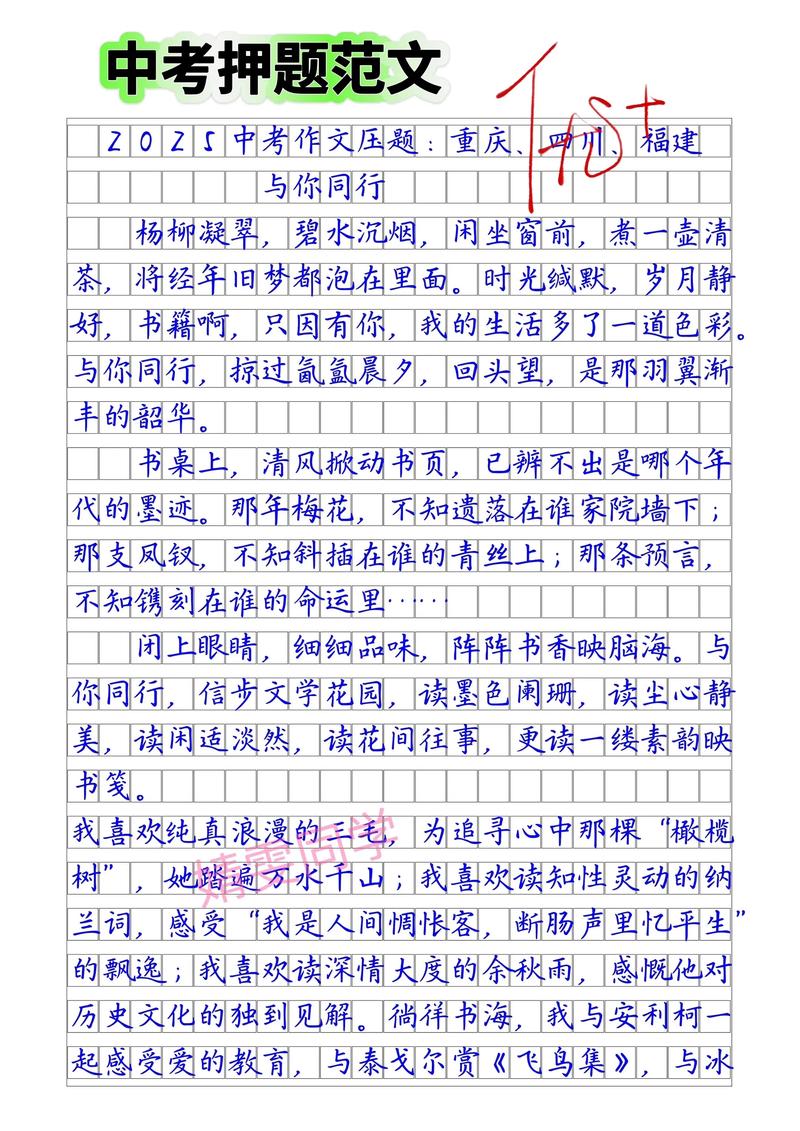 中考押题范文
2025中考作文压题：重庆、四川、福建
与你同行
杨柳凝翠，碧水沉烟，闲坐窗前，煮一壶清
茶，将经年旧梦都泡在里面。时光缄默，岁月静
好，书籍啊，只因有你，我的生活多了一道色彩。
与你同行，掠过氤氲晨夕，回头望，是那羽翼渐
丰的韶华。
书桌上，清风掀动书页，已辨不出是哪个年
代的墨迹。那年梅花，不知遗落在谁家院墙下；
那支凤钗，不知斜插在谁的青丝上；那条预言，
不知镌刻在谁的命运里……
闭上眼睛，细细品味，阵阵书香映脑海。与
你同行，信步文学花园，读墨色阑珊，读尘心静
美，读闲适淡然，读花间往事，更读一缕素韵映
书笺。
我喜欢纯真浪漫的三毛，为追寻心中那棵“橄榄
树”，她踏遍万水千山；我喜欢读知性灵动的纳
兰词，感受“我是人间惆怅客，断肠声里忆平生”
的飘逸；我喜欢读深情大度的余秋雨，感慨他对
历史文化的独到见解。徜徉书海，我与安利柯一
起感受爱的教育，与泰戈尔赏《飞鸟集》，与冰
婧雯同学